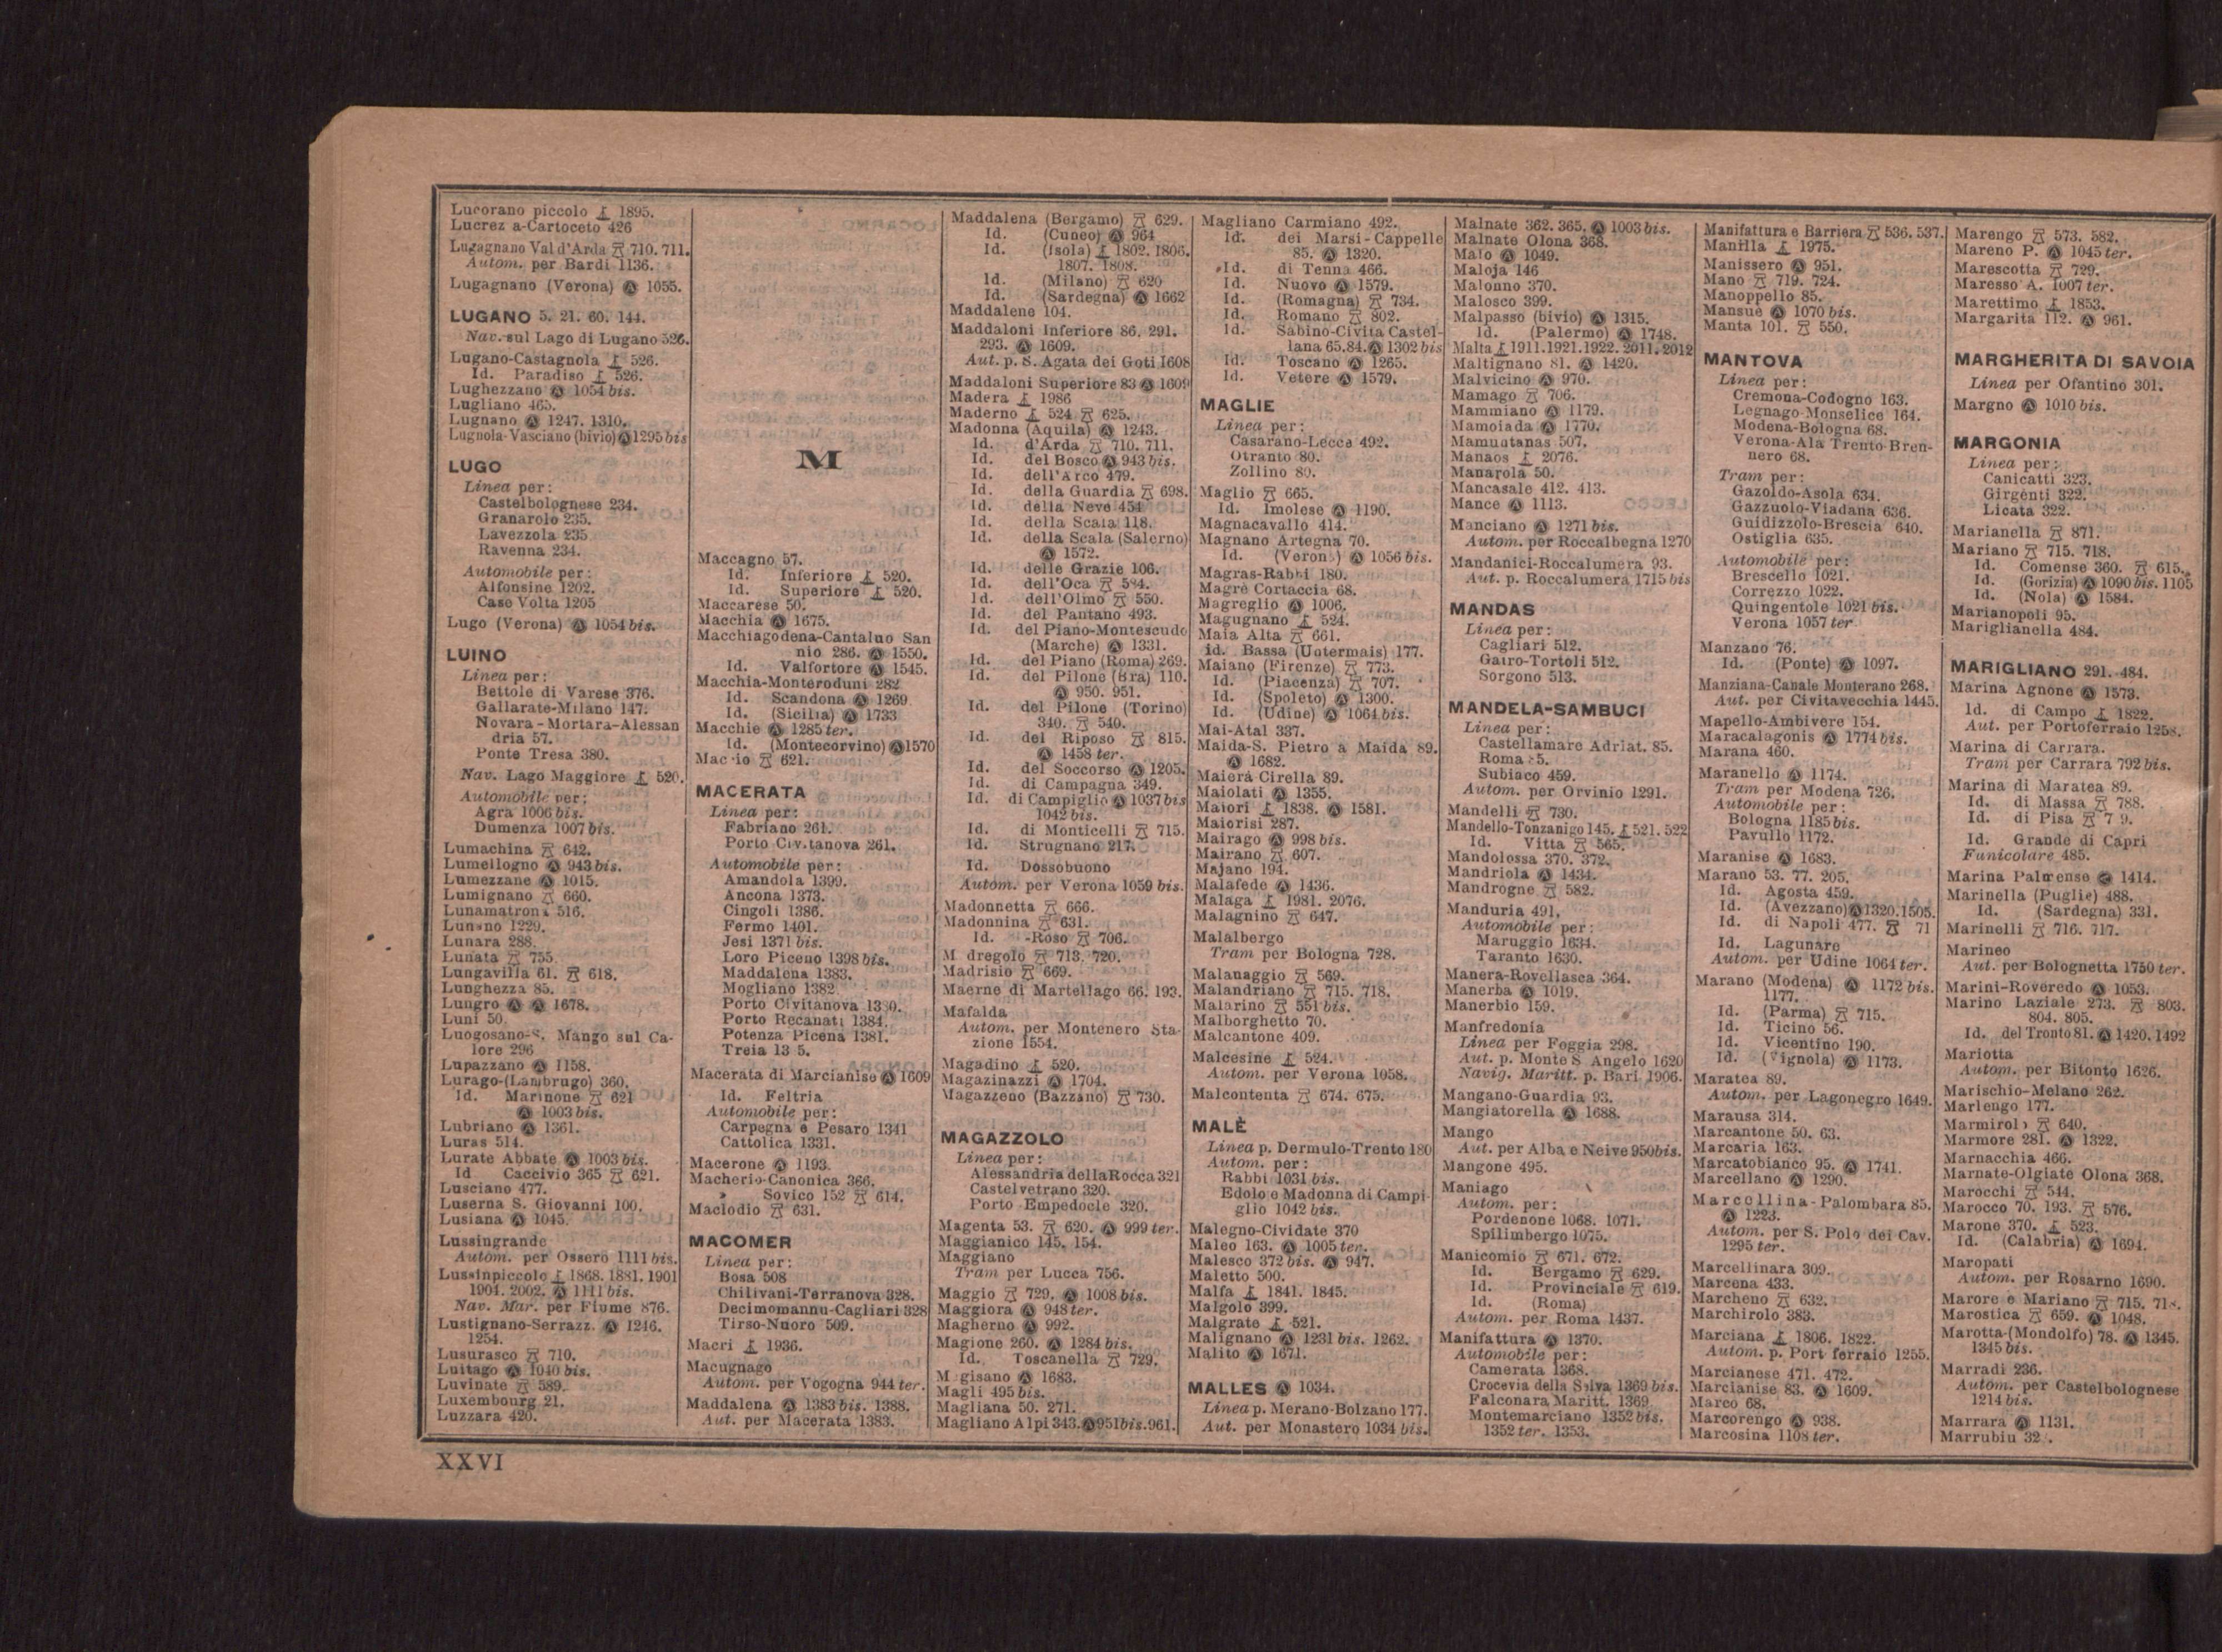 Lucorano piccolo 1895.
Lucrez a-Cartoceto 426
Lugagnano Val d'Arda 710. 711.
Autom. per Bardi 1136.
Lugagnano (Verona) Ⓐ 1055.
LUGANO 5. 21. 60. 144.
Nav. sul Lago di Lugano 526.
Lugano-Castagnola 526.
Id. Paradiso 526.
Lughezzano Ⓐ 1054 bis.
Lugliano 465.
Lugnano Ⓐ 1247. 1310.
Lugnola-Vasciano (bivio) Ⓐ 1295 bis
LUGO
Linea per:
Castelbolognese 234.
Granarolo 235.
Lavezzola 235
Ravenna 234.
Automobile per:
Alfonsine 1202.
Case Volta 1205
Lugo (Verona) Ⓐ 1054 bis.
LUINO
Linea per:
Bettole di Varese 376.
Gallarate-Milano 147.
Novara-Mortara-Alessan
dria 57.
Ponte Tresa 380.
Nav. Lago Maggiore 520.
Automobile per:
Agra 1006 bis.
Dumenza 1007 bis.
Lumachina 642.
Lumellogno Ⓐ 943 bis.
Lumezzane Ⓐ 1015.
Lumignano 660.
Lunamatrona 516.
Lunano 1229.
Lunara 288.
Lunata 755.
Lungavilla 61. 618.
Lunghezza 85.
Lungro Ⓐ Ⓐ 1678.
Luni 50.
Luogosano-S. Mango sul Ca-
lore 296
Lupazzano Ⓐ 1158.
Lurago-(Lambrugo) 360.
Id. Marinone 621
Ⓐ 1003 bis.
Lubriano Ⓐ 1361.
Luras 514.
Lurate Abbate Ⓐ 1003 bis.
Id Caccivio 365 621.
Lusciano 477.
Luserna S. Giovanni 100.
Lusiana Ⓐ 1045.
Lussingrande
Autom. per Ossero 1111 bis.
Lussinpiccolo 1868. 1881. 1901
1904. 2002. Ⓐ 1111 bis.
Nav. Mar. per Fiume 876.
Lustignano-Serrazz. Ⓐ 1246.
1254.
Lusurasco 710.
Luitago Ⓐ 1040 bis.
Luvinate 589.
Luxembourg 21.
Luzzara 420.
M
Maccagno 57.
Id. Inferiore 520.
Id. Superiore 520.
Maccarese 50.
Macchia Ⓐ 1675.
Macchiagodena-Cantaluo San
nio 286. Ⓐ 1550.
Id. Valfortore Ⓐ 1545.
Macchia-Monteroduni 282
Id. Scandona Ⓐ 1269
Id. (Sicilia) Ⓐ 1733
Macchie Ⓐ 1285 ter.
Id. (Montecorvino) Ⓐ 1570
Mac io 621.
MACERATA
Linea per:
Fabriano 261.
Porto Civitanova 261.
Automobile per:
Amandola 1399.
Ancona 1373.
Cingoli 1386.
Fermo 1401.
Jesi 1371 bis.
Loro Piceno 1398 bis.
Maddalena 1383.
Mogliano 1382
Porto Civitanova 1380.
Porto Recanati 1384.
Potenza Picena 1381.
Treia 13 5.
Macerata di Marcianise Ⓐ 1609
Id. Feltria
Automobile per:
Carpegna e Pesaro 1341
Cattolica 1331.
Macerone Ⓐ 1193.
Macherio-Canonica 366.
» Sovico 152 614.
Maclodio 631.
MACOMER
Linea per:
Bosa 508
Chilivani-Terranova 328.
Decimomannu-Cagliari 328
Tirso-Nuoro 509.
Macri 1936.
Macugnago
Autom. per Vogogna 944 ter.
Maddalena Ⓐ 1383 bis. 1388.
Aut. per Macerata 1383.
Maddalena (Bergamo) 629.
Id. (Cuneo) Ⓐ 964
Id. (Isola) 1802. 1806.
1807. 1808.
Id. (Milano) 620
Id. (Sardegna) Ⓐ 1662
Maddalene 104.
Maddaloni Inferiore 86. 291.
293. Ⓐ 1609.
Aut. p. S. Agata dei Goti 1608
Maddaloni Superiore 83 Ⓐ 1609
Madera 1986
Maderno 524 625.
Madonna (Aquila) Ⓐ 1243.
Id. d'Arda 710. 711.
Id. del Bosco Ⓐ 943 bis.
Id. dell'Arco 479.
Id. della Guardia 698.
Id. della Neve 454
Id. della Scala 118.
Id. della Scala (Salerno)
Ⓐ 1572.
Id. delle Grazie 106.
Id. dell'Oca 584.
Id. dell'Olmo 550.
Id. del Pantano 493.
Id. del Piano-Montescudo
(Marche) Ⓐ 1331.
Id. del Piano (Roma) 269.
Id. del Pilone (Bra) 110.
Ⓐ 950. 951.
Id. del Pilone (Torino)
340. 540.
Id. del Riposo 815.
Ⓐ 1458 ter.
Id. del Soccorso Ⓐ 1205.
Id. di Campagna 349.
Id. di Campiglio Ⓐ 1037 bis
1042 bis.
Id. di Monticelli 715.
Id. Strugnano 217.
Id. Dossobuono
Autom. per Verona 1059 bis.
Madonnetta 666.
Madonnina 631.
Id. -Roso 706.
M dregolo 713. 720.
Madrisio 669.
Maerne di Martellago 66. 193.
Mafalda
Autom. per Montenero Sta-
zione 1554.
Magadino 520.
Magazinazzi Ⓐ 1704.
Magazzeno (Bazzano) 730.
MAGAZZOLO
Linea per:
Alessandria della Rocca 321
Castelvetrano 320.
Porto Empedocle 320.
Magenta 53. 620. Ⓐ 999 ter.
Maggianico 145. 154.
Maggiano
Tram per Lucca 756.
Maggio 729. Ⓐ 1008 bis.
Maggiora Ⓐ 948 ter.
Magherno Ⓐ 992.
Magione 260. Ⓐ 1284 bis.
Id. Toscanella 729.
M gisano Ⓐ 1683.
Magli 495 bis.
Magliana 50. 271.
Magliano Alpi 343. Ⓐ 951 bis. 961.
Magliano Carmiano 492.
Id. dei Marsi-Cappelle
85. Ⓐ 1320.
Id. di Tenna 466.
Id. Nuovo Ⓐ 1579.
Id. (Romagna) 734.
Id. Romano 802.
Id. Sabino-Civita Castel-
lana 65.84. Ⓐ 1302 bis
Id. Toscano Ⓐ 1265.
Id. Vetere Ⓐ 1579.
MAGLIE
Linea per:
Casarano-Lecce 492.
Otranto 80.
Zollino 80.
Maglio 665.
Id. Imolese Ⓐ 1190.
Magnacavallo 414.
Magnano Artegna 70.
Id. (Verona) Ⓐ 1056 bis.
Magras-Rabbi 180.
Magrè Cortaccia 68.
Magreglio Ⓐ 1006.
Magugnano 524.
Maia Alta 661.
id. Bassa (Untermais) 177.
Maiano (Firenze) 773.
Id. (Piacenza) 707.
Id. (Spoleto) Ⓐ 1300.
Id. (Udine) Ⓐ 1064 bis.
Mai-Atal 337.
Maida-S. Pietro a Maida 89.
Ⓐ 1682.
Maierà Cirella 89.
Maiolati Ⓐ 1355.
Maiori 1838. Ⓐ 1581.
Maiorisi 287.
Mairago Ⓐ 998 bis.
Mairano 607.
Majano 194.
Malafede Ⓐ 1436.
Malaga 1981. 2076.
Malagnino 647.
Malalbergo
Tram per Bologna 728.
Malanaggio 569.
Malandriano 715. 718.
Malarino 551 bis.
Malborghetto 70.
Malcantone 409.
Malcesine 524.
Autom. per Verona 1058.
Malcontenta 674. 675.
MALÈ
Linea p. Dermulo-Trento 180
Autom. per:
Rabbi 1031 bis.
Edolo e Madonna di Campi-
glio 1042 bis.
Malegno-Cividate 370
Maleo 163. Ⓐ 1005 ter.
Malesco 372 bis. Ⓐ 947.
Maletto 500.
Malfa 1841. 1845.
Malgolo 399.
Malgrate 521.
Malignano Ⓐ 1231 bis. 1262.
Malito Ⓐ 1671.
MALLES Ⓐ 1034.
Linea p. Merano-Bolzano 177.
Aut. per Monastero 1034 bis.
Malnate 362. 365. Ⓐ 1003 bis.
Malnate Olona 368.
Malo Ⓐ 1049.
Maloja 146
Malonno 370.
Malosco 399.
Malpasso (bivio) Ⓐ 1315.
Id. (Palermo) Ⓐ 1748.
Malta 1911.1921.1922.2011.2012
Maltignano 81. Ⓐ 1420.
Malvicino Ⓐ 970.
Mamago 706.
Mammiano Ⓐ 1179.
Mamoiada Ⓐ 1770.
Mamuntanas 507.
Manaos 2076.
Manarola 50.
Mancasale 412. 413.
Mance Ⓐ 1113.
Manciano Ⓐ 1271 bis.
Autom. per Roccalbegna 1270
Mandanici-Roccalumera 93.
Aut. p. Roccalumera 1715 bis
MANDAS
Linea per:
Cagliari 512.
Gairo-Tortolì 512.
Sorgono 513.
MANDELA-SAMBUCI
Linea per:
Castellamare Adriat. 85.
Roma 85.
Subiaco 459.
Autom. per Orvinio 1291.
Mandelli 730.
Mandello-Tonzanigo 145. 521. 522
Id. Vitta 565.
Mandolossa 370. 372.
Mandriola Ⓐ 1434.
Mandrogne 582.
Manduria 491.
Automobile per:
Maruggio 1634.
Taranto 1630.
Manera-Rovellasca 364.
Manerba Ⓐ 1019.
Manerbio 159.
Manfredonia
Linea per Foggia 298.
Aut. p. Monte S Angelo 1620
Navig. Maritt. p. Bari 1906.
Mangano-Guardia 93.
Mangiatorella Ⓐ 1688.
Mango
Aut. per Alba e Neive 950 bis.
Mangone 495.
Maniago
Autom. per:
Pordenone 1068. 1071.
Spilimbergo 1075.
Manicomio 671. 672.
Id. Bergamo 629.
Id. Provinciale 619.
Id. (Roma)
Autom. per Roma 1437.
Manifattura Ⓐ 1370.
Automobile per:
Camerata 1368.
Crocevia della Selva 1369 bis.
Falconara Maritt. 1369
Montemarciano 1352 bis.
1352 ter. 1353.
Manifattura e Barriera 536. 537.
Manilla 1975.
Manissero Ⓐ 951.
Mano 719. 724.
Manoppello 85.
Mansuè Ⓐ 1070 bis.
Manta 101. 550.
MANTOVA
Linea per:
Cremona-Codogno 163.
Legnago-Monselice 164.
Modena-Bologna 68.
Verona-Ala Trento-Bren-
nero 68.
Tram per:
Gazoldo-Asola 634.
Gazzuolo-Viadana 636.
Guidizzolo-Brescia 640.
Ostiglia 635.
Automobile per:
Brescello 1021.
Correzzo 1022.
Quingentole 1021 bis.
Verona 1057 ter
Manzano 76.
Id. (Ponte) Ⓐ 1097.
Manziana-Canale Monterano 268.
Aut. per Civitavecchia 1445.
Mapello-Ambivere 154.
Maracalagonis Ⓐ 1774 bis.
Marana 460.
Maranello Ⓐ 1174.
Tram per Modena 726.
Automobile per:
Bologna 1185 bis.
Pavullo 1172.
Maranise Ⓐ 1683.
Marano 53. 77. 205.
Id. Agosta 459.
Id. (Avezzano) Ⓐ 1320.1505.
Id. di Napoli 477. 71
Id. Lagunare
Autom. per Udine 1064 ter.
Marano (Modena) Ⓐ 1172 bis.
1177.
Id. (Parma) 715.
Id. Ticino 56.
Id. Vicentino 190.
Id. (Vignola) Ⓐ 1173.
Maratea 89.
Autom. per Lagonegro 1649.
Marausa 314.
Marcantone 50. 63.
Marcaria 163.
Marcatobianco 95. Ⓐ 1741.
Marcellano Ⓐ 1290.
Marcellina-Palombara 85.
Ⓐ 1223.
Autom. per S. Polo dei Cav.
1295 ter.
Marcellinara 309.
Marcena 433.
Marcheno 632.
Marchirolo 383.
Marciana 1806. 1822.
Autom. p. Port ferraio 1255.
Marcianese 471. 472.
Marcianise 83. Ⓐ 1609.
Marco 68.
Marcorengo Ⓐ 938.
Marcosina 1108 ter.
Marengo 573. 582.
Mareno P. Ⓐ 1045 ter.
Marescotta 729.
Maresso A. 1007 ter.
Marettimo 1853.
Margarita 112. Ⓐ 961.
MARGHERITA DI SAVOIA
Linea per Ofantino 301.
Margno Ⓐ 1010 bis.
MARGONIA
Linea per:
Canicattì 323.
Girgenti 322.
Licata 322.
Marianella 871.
Mariano 715. 718.
Id. Comense 360. 615.
Id. (Gorizia) Ⓐ 1090 bis. 1105
Id. (Nola) Ⓐ 1584.
Marianopoli 95.
Mariglianella 484.
MARIGLIANO 291. 484.
Marina Agnone Ⓐ 1573.
Id. di Campo 1822.
Aut. per Portoferraio 1258.
Marina di Carrara.
Tram per Carrara 792 bis.
Marina di Maratea 89.
Id. di Massa 788.
Id. di Pisa 7 9.
Id. Grande di Capri
Funicolare 485.
Marina Palmense Ⓐ 1414.
Marinella (Puglie) 488.
Id. (Sardegna) 331.
Marinelli 716. 717.
Marineo
Aut. per Bolognetta 1750 ter.
Marini-Roveredo Ⓐ 1053.
Marino Laziale 273. 803.
804. 805.
Id. del Tronto 81. Ⓐ 1420. 1492
Mariotta
Autom. per Bitonto 1626.
Marischio-Melano 262.
Marlengo 177.
Marmirolo 640.
Marmore 281. Ⓐ 1322.
Marnacchia 466.
Marnate-Olgiate Olona 368.
Marocchi 544.
Marocco 70. 193. 576.
Marone 370. 523.
Id. (Calabria) Ⓐ 1694.
Maropati
Autom. per Rosarno 1690.
Marore e Mariano 715. 718.
Marostica 659. Ⓐ 1048.
Marotta-(Mondolfo) 78. Ⓐ 1345.
1345 bis.
Marradi 236.
Autom. per Castelbolognese
1214 bis.
Marrara Ⓐ 1131.
Marrubiu 32 .
XXVI